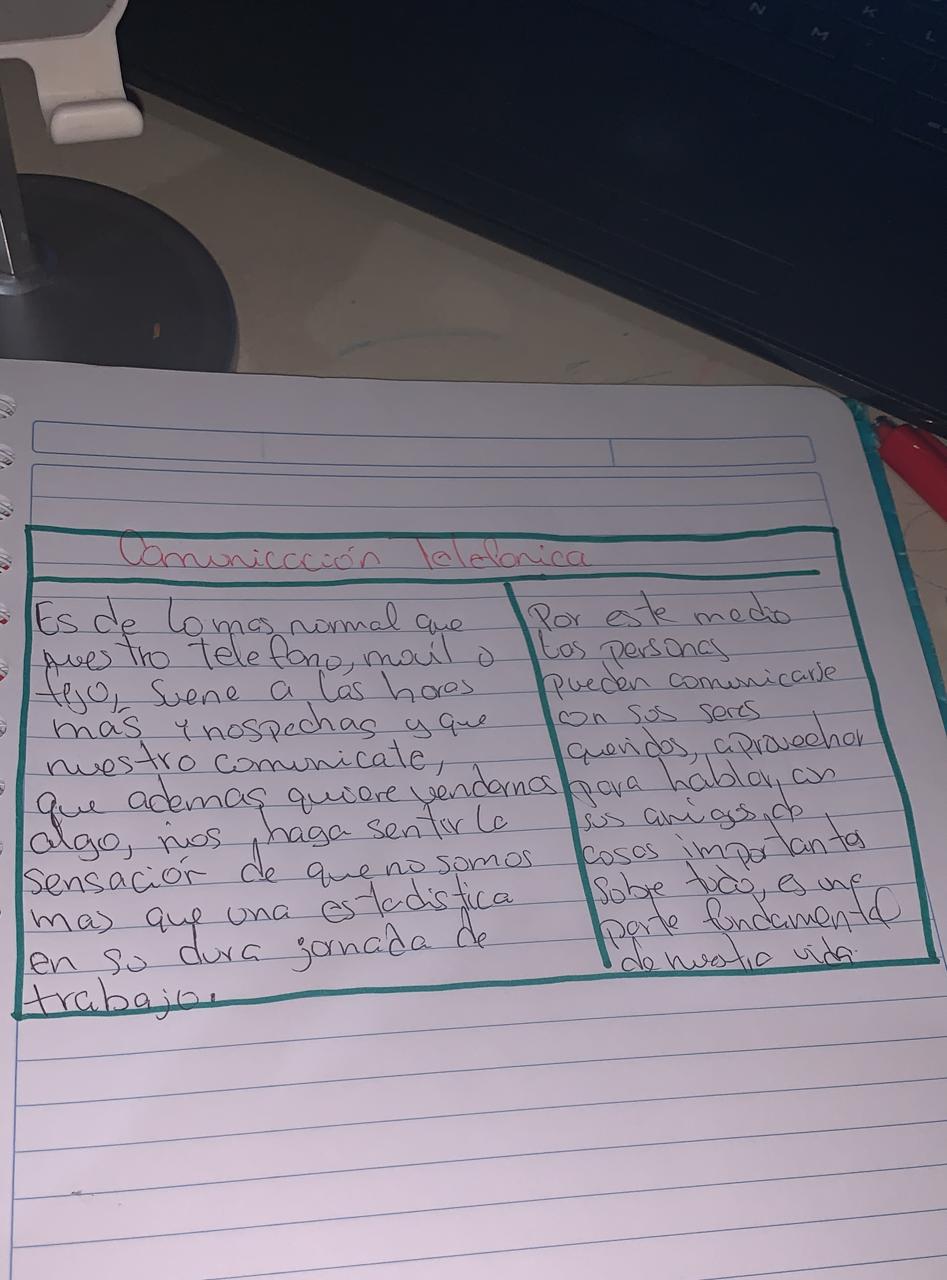 Comunicación Telefonica
Es de lo mas normal que
nuestro telefono, movil o
fijo, suene a las horas
mas inospechas y que
nuestro comunicate,
que ademas quiere vendernos
algo, nos haga sentir la
sensación de que no somos
mas que una estadistica
en su dura jornada de
trabajo.
Por este medio
las personas
pueden comunicarse
con sus seres
queridos, aprovechar
para hablar, con
sus amigos, de
cosas importantes
sobre todo, es una
parte fundamental
de nuestra vida.
N
K
M
L